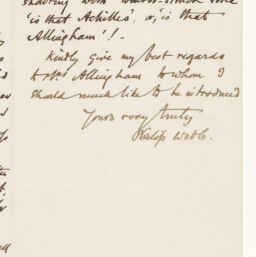 'is that Achilles', or, 'is that
Allingham'!! -
Kindly give my best regards
to Mrs Allingham to whom I
should much like to be introduced
Yours very truly
Philip Webb.